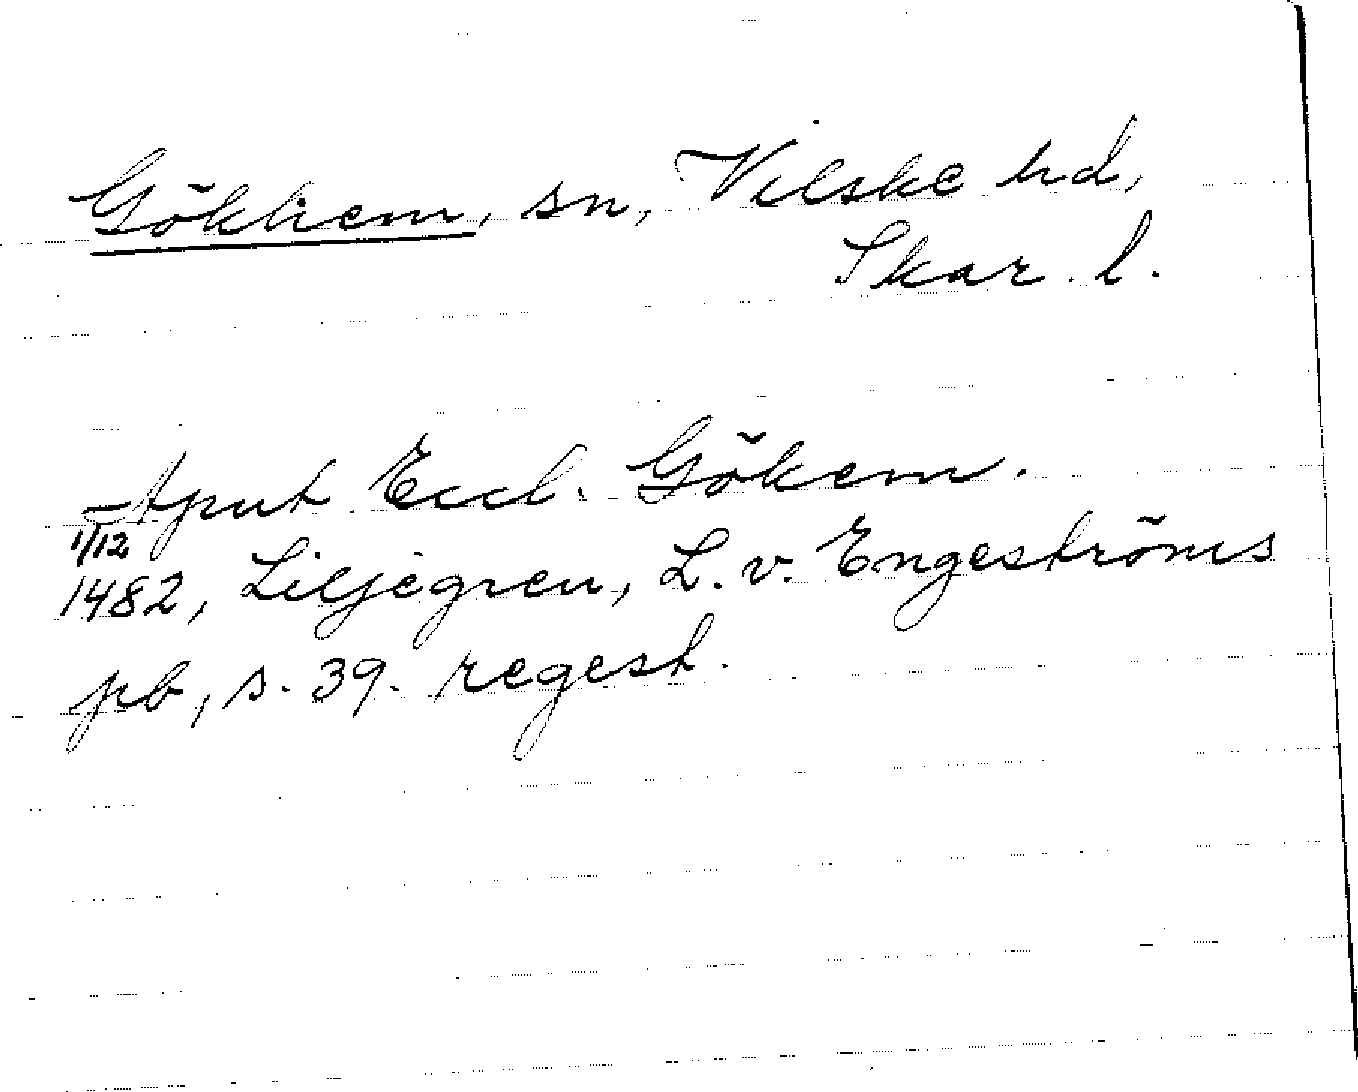 Gökhem, sn, Vilske hd,
Skar. l.
Aput Eccl. Gökem.
1/12
1482, Liljegren, L. v. Engeströms
pb, s. 39. regest.